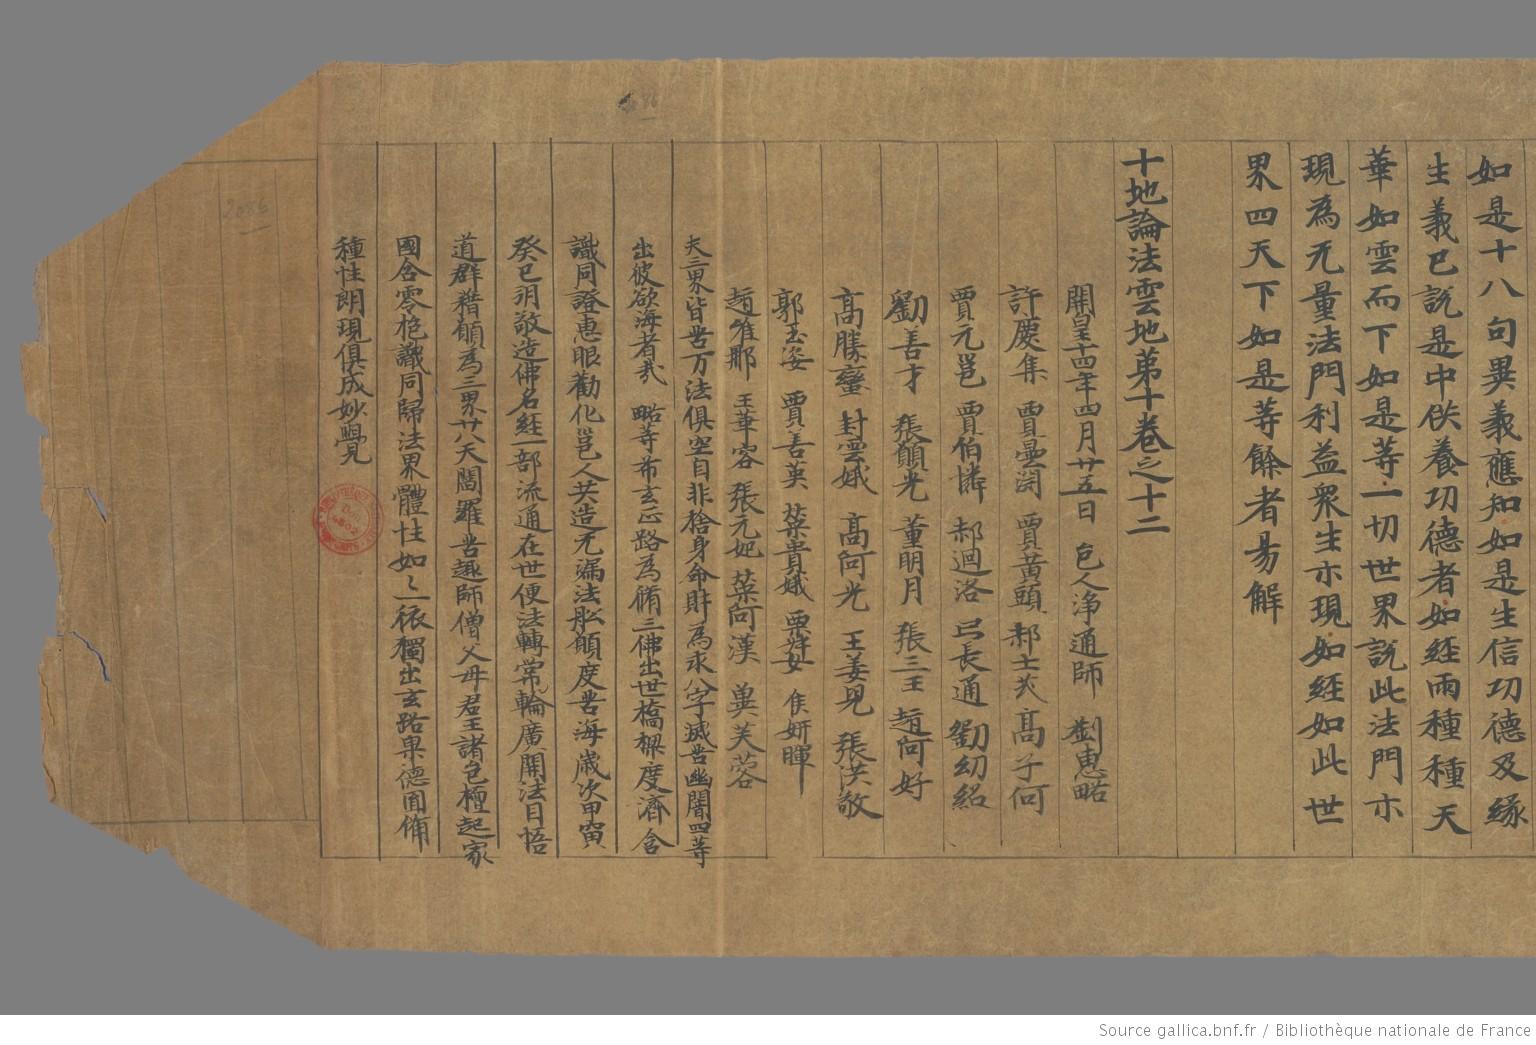 如是十八句異義應知如是生信功德及緣
生義已說是中供養功德者如經雨種種天
華如雲而下如是等一切世界說此法門亦
現為无量法門利益衆生亦現如經如此世
界四天下如是等餘者易解
十地論法雲地苐十卷之十二
開皇十四年四月廿五日 邑人淨通師 劉惠略
許慶集 賈曇 賈黃頭 郝士 高子何
賈元邕 賈伯憐 郝迴洛 呂長通 劉幼紹
劉善才 張願光 董明月 張三王 趙阿好
高勝蠻 封雲娥 高阿光 王姜兒 張洪敬
郭玉姿 賈善英 葉貴娥 栗 侯妍暉
趙維那 王華容 張元妃 葉阿漢  巢芙蓉
夫三界皆苦万法俱空自非捨身命財為求八字滅苦幽闇四等
出彼欲海者㢤 略等希玄正路為脩三佛出世橋樑度濟含
識同證惠眼勸化邕人共造无漏法舩願度苦海歲次甲寅
癸巳朔敬造佛名經一部流通在世便法轉常輪廣開法目悟
道群 願為三界廿八天閻羅苦趣師僧父母君王諸邑檀起家
國含零 識同歸法界體性如〻一依獨出玄路果德圓備
種性朗現俱成妙覺
2086
Source gallica.bnf.fr / Bibliothèque nationale de France